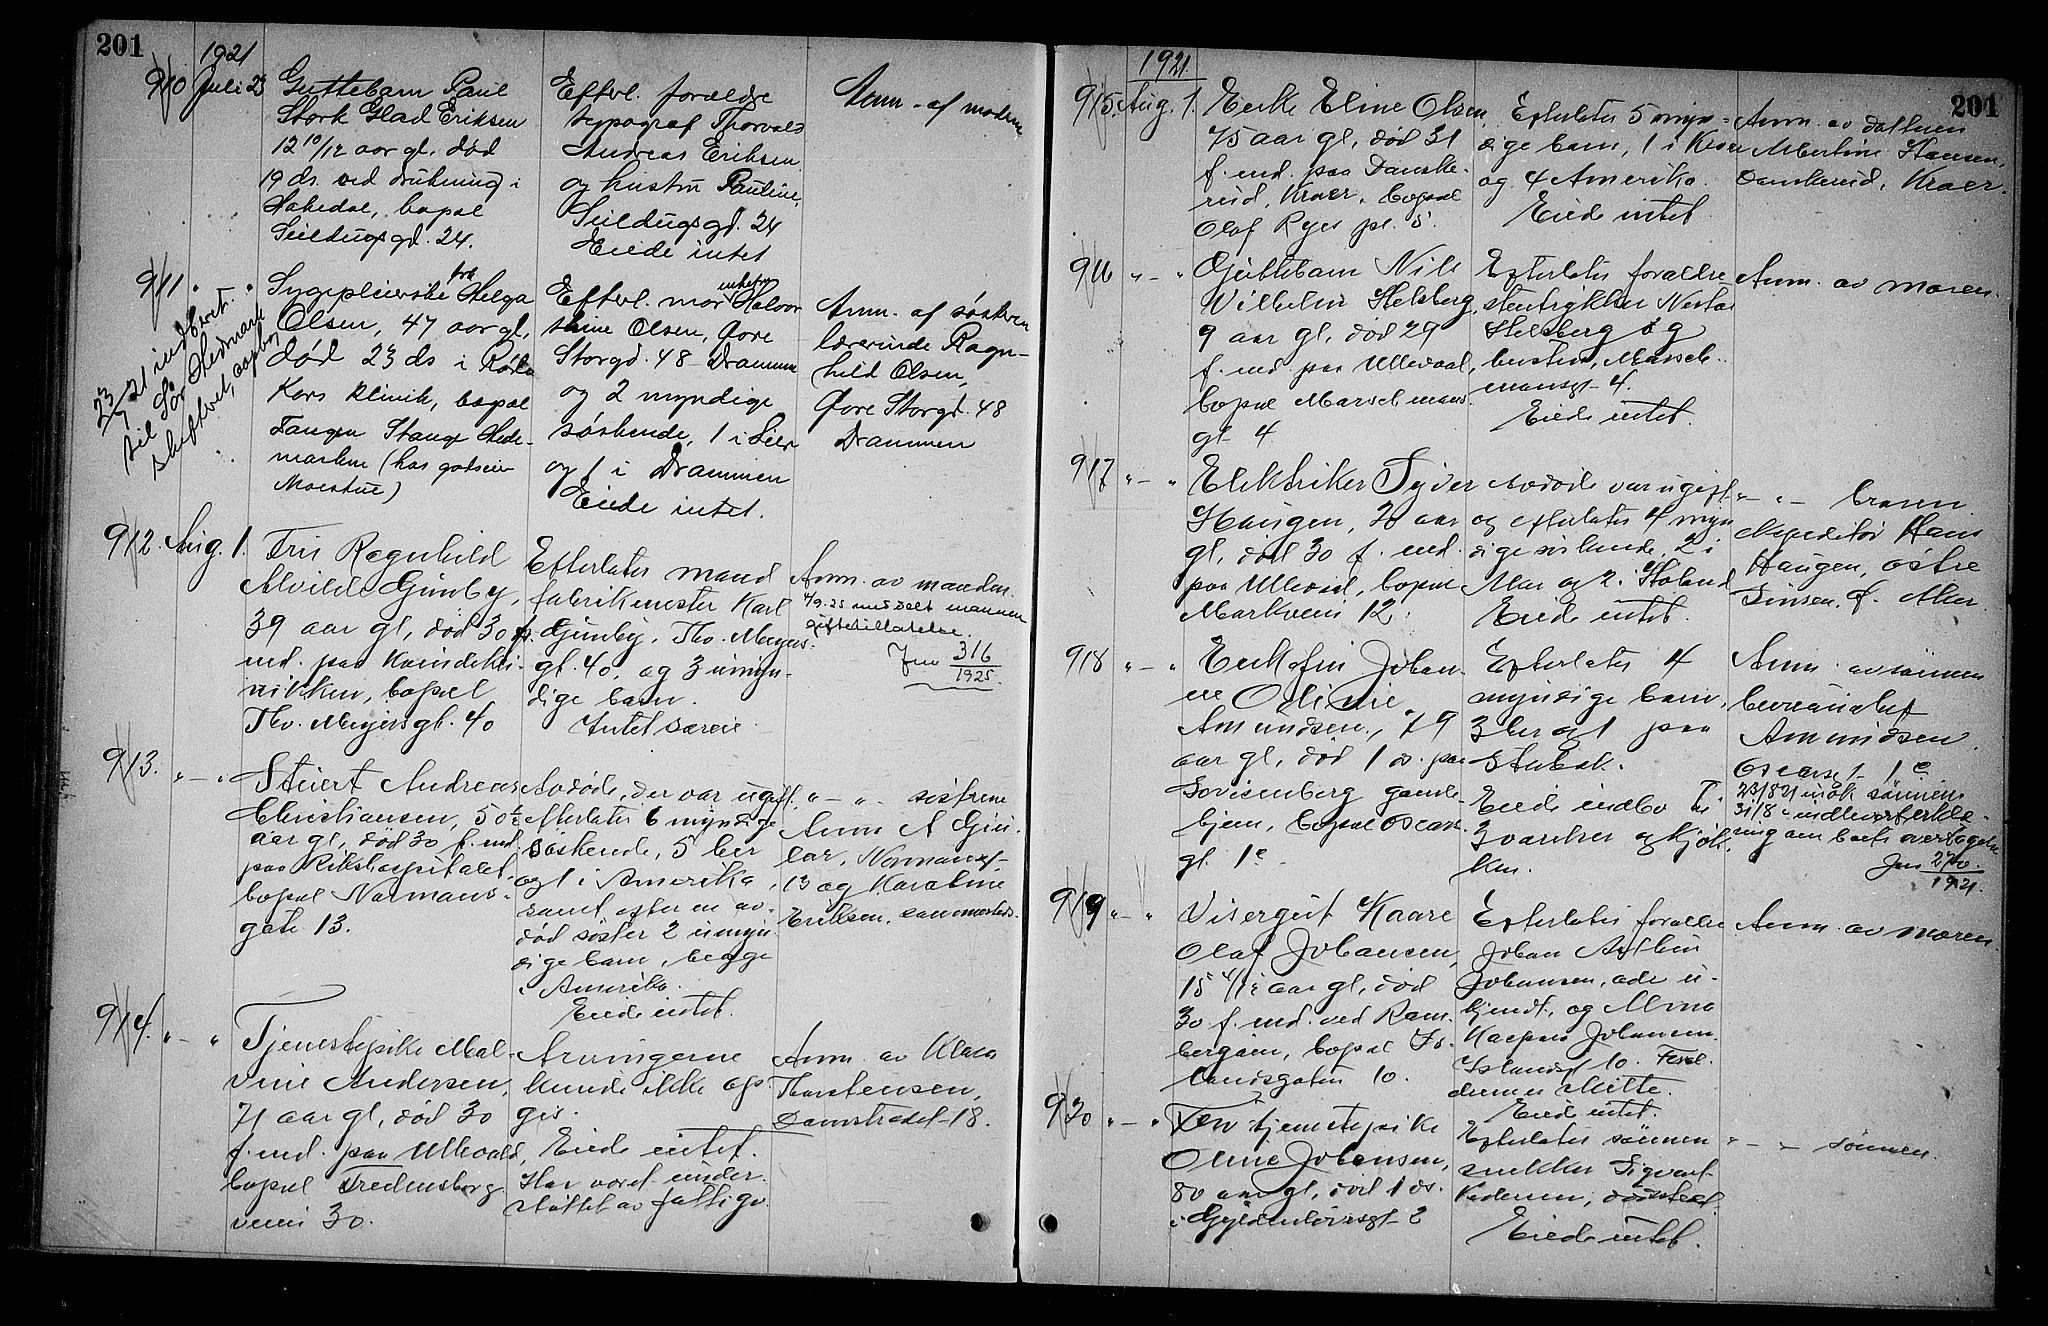 201
1921
910 Juli 23
Guttebarn Paul
Stork Glad Eriksen
12 10/12 aar gl. død
19 ds. ved drukning i
Hakedal, bopæl
Seildugsgd. 24.
Efterl. forældre
typograf Thorvald
Andreas Eriksen
og hustru Pauline,
Seildugsgd. 24
Eiede intet
Anm. af modern
911 " "
23/7 21 indberet.
til Sør Hedmark
skifteret,
Sygepleierske frk Helga
Olsen, 47 aar gl.
død 23 ds i Røde
Kors klinik, bopæl
Tangen Stange Hede-
marken (hos godseier
Moestue)
Efterl. mor enkefru Halvor
dine Olsen, Øvre
Storgd. 48 Drammen
og 2 myndige
søskende, 1 i Lier
og 1 i Drammen
Eiede intet.
Anm. af søsteren
lærerinde Ragn-
hild Olsen,
Øvre Storgd. 48
Drammen
912. Aug. 1.
Fru Ragnhild
Alvilde Gjinby,
39 aar gl, død 30 f.
md. paa Kvindekli-
nikken, bopæl
Thv. Meyers gt. 40
Efterlater mand
fabrikmester Karl
Gjinby, Thv. Meyers-
gt. 40, og 3 umyn-
dige barn.
Intet særeie.
Anm. av manden.
4/9.25 meddelt mannen
giftetillatelse.
Jnr 316
1925.
913. " — "
Andreas
Christiansen, 50½
aar gl, død 30 f. md.
paa Rikshospitalet,
bopæl Normans-
gate 13.
Avdøde, der var ugift,
efterlater 6 myndige
søskende, 5 her
og 1 i Amerika,
samt efter en av-
død søster 2 umyn
dige barn, begge
i Amerika.
Eiede intet.
" — " søstrene
Anna A
Normansgt
13 og Karoline
Eriksen, sammesteds.
914. " — "
Tjenestepike Mal-
vine Andersen,
71 aar gl, død 30
f. md. paa Ullevaal,
bopæl Fredensborg
veien 30.
Arvingerne
kunde ikke op-
gis.
Eiede intet.
Har været under-
støttet av fattigv.
Anm. av Klara
Thorstensen,
Damstrædet 18.
201
1921.
915. Aug. 1.
Enke Eline Olsen,
75 aar gl, død 31
f. md. paa Danske-
rud, Kraer, bopæl
Olaf Ryes pl. 5.
Efterlater 5 myn-
dige barn, 1 i Kraer
og 4 Amerika.
Eiede intet.
Anm. av datteren
Martine Hansen,
Danskerud, Kraer.
916 " — "
Gjuttebarn Nils
Vilhelm Helsberg,
9 aar gl, død 29
f. md. paa Ullevaal,
bopæl Marselmans
gt 4
Efterlater forældre
stentrykker Nestor
Helsberg og
hustru, Marsel-
mansgt 4.
Eiede intet.
Anm. av moren.
917 " — "
Elektriker Syver
Haugen, 20 aar
gl, død 30 f. md.
paa Ullevaal, bopæl
Markveien 12.
Avdøde var ugift
og efterlater 4 myn
dige søskende, 2 i
Aker og 2 i
Eiede intet.
" — " broren
ekspeditør Hans
Haugen, østre
Sinsen, Ø. Aker
918 " — "
Enkefru Johan-
ne Oline
Amundsen, 79
aar gl, død 1 ds. paa
Lovisenberg gamle-
hjem, bopæl Oscars
gt. 1c.
Efterlater 4
myndige barn,
3 her og 1 paa
Stabæk.
Eiede indbo til
2 værelser og kjøk-
ken.
Anm. av sønnen
Amundsen
Oscarsgt 1c
23/8 21 møtt sønnen
31/8 " indlevert erklæ-
ring om boets overtagelse
Jnr 2740
1921.
919 " — "
Visergut Kaare
Olaf Johansen,
15 4/12 aar gl, død
30 f. md. ved Ram-
bergøen, bopæl Is-
landsgaten 10.
Efterlater forældre
Johan Arthur
Johansen, adr. u-
kjendt, og Alma
Kaspara Johansen,
Islandsgt 10. Foræl-
drene skilte.
Eiede intet.
Anm. av moren
920 " — "
Forv. tjenestepike
Oline Johansen,
80 aar gl, død 1 ds.
i Gyldenløvesgt 2
Efterlater sønnen
snekker Sigvart
Pedersen,
Eiede intet.
" — " sønnen.